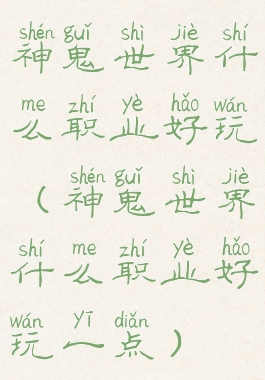 shén guǐ shì jiè shí
神鬼世界什
me zhí yè hǎo wán
么职业好玩
shén guǐ shì jiè
（神鬼世界
shí me zhí yè hǎo
什么职业好
wán yī diǎn
玩一点）